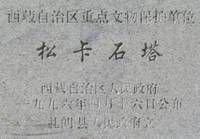 西藏自治区重点文物保护单位
松卡石塔
西藏自治区人民政府
一九九六年四月十六日公布
扎囊县人民政府立